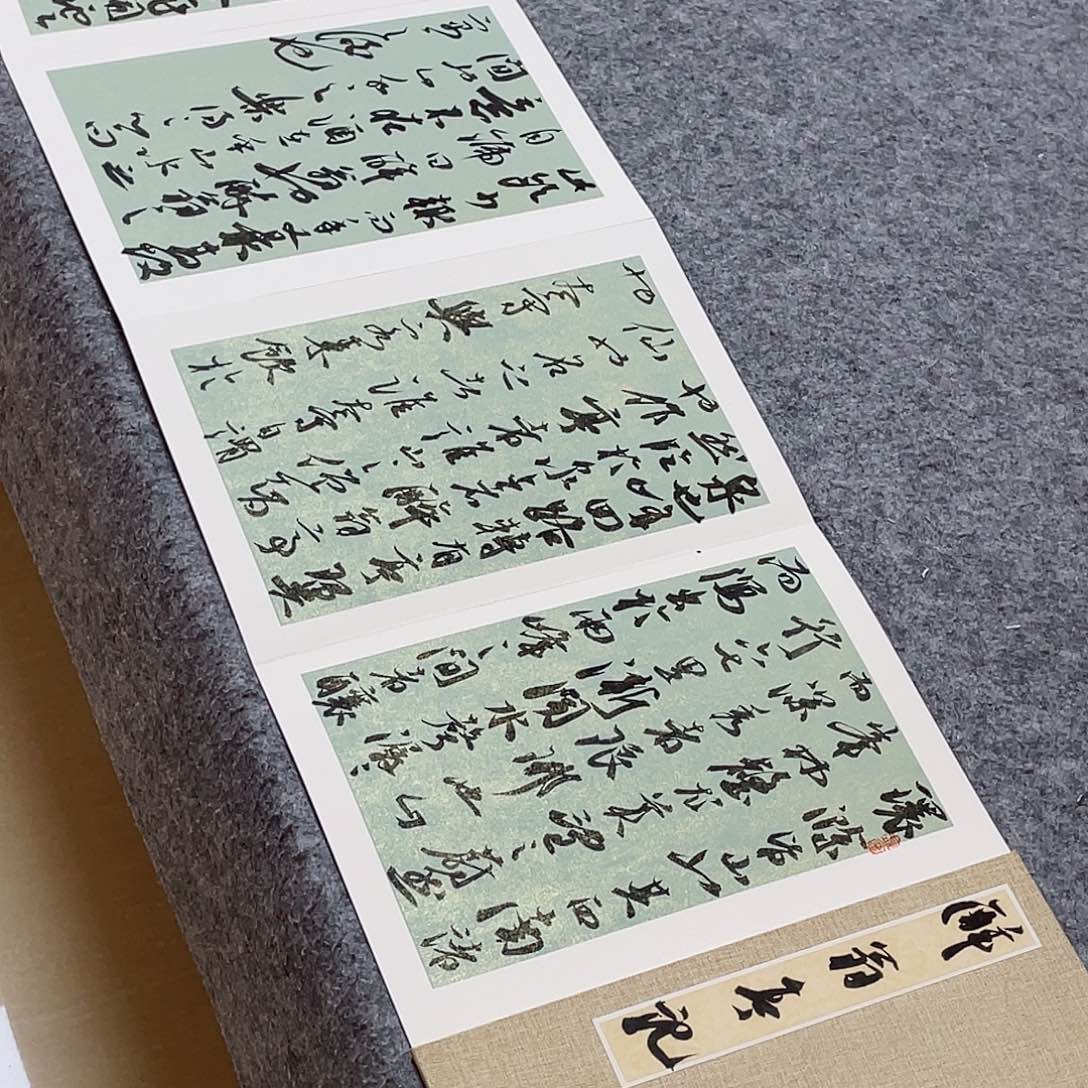 醉翁亭記
環滁皆山也其西南諸
峰林壑尤美望之蔚然
而深秀者琅琊也山
行六七里漸聞水聲潺潺
而瀉出於兩峰之間者釀
泉也峰回路轉有亭翼
然臨於泉上者醉翁亭
也作亭者誰山之僧
仙也名之者誰太守自謂
也太守與客來飲於
此飲少輒醉而年又最高故
自號曰醉翁也醉翁之
意不在酒在乎山水之
間也山水之樂得之心
而寓之酒也